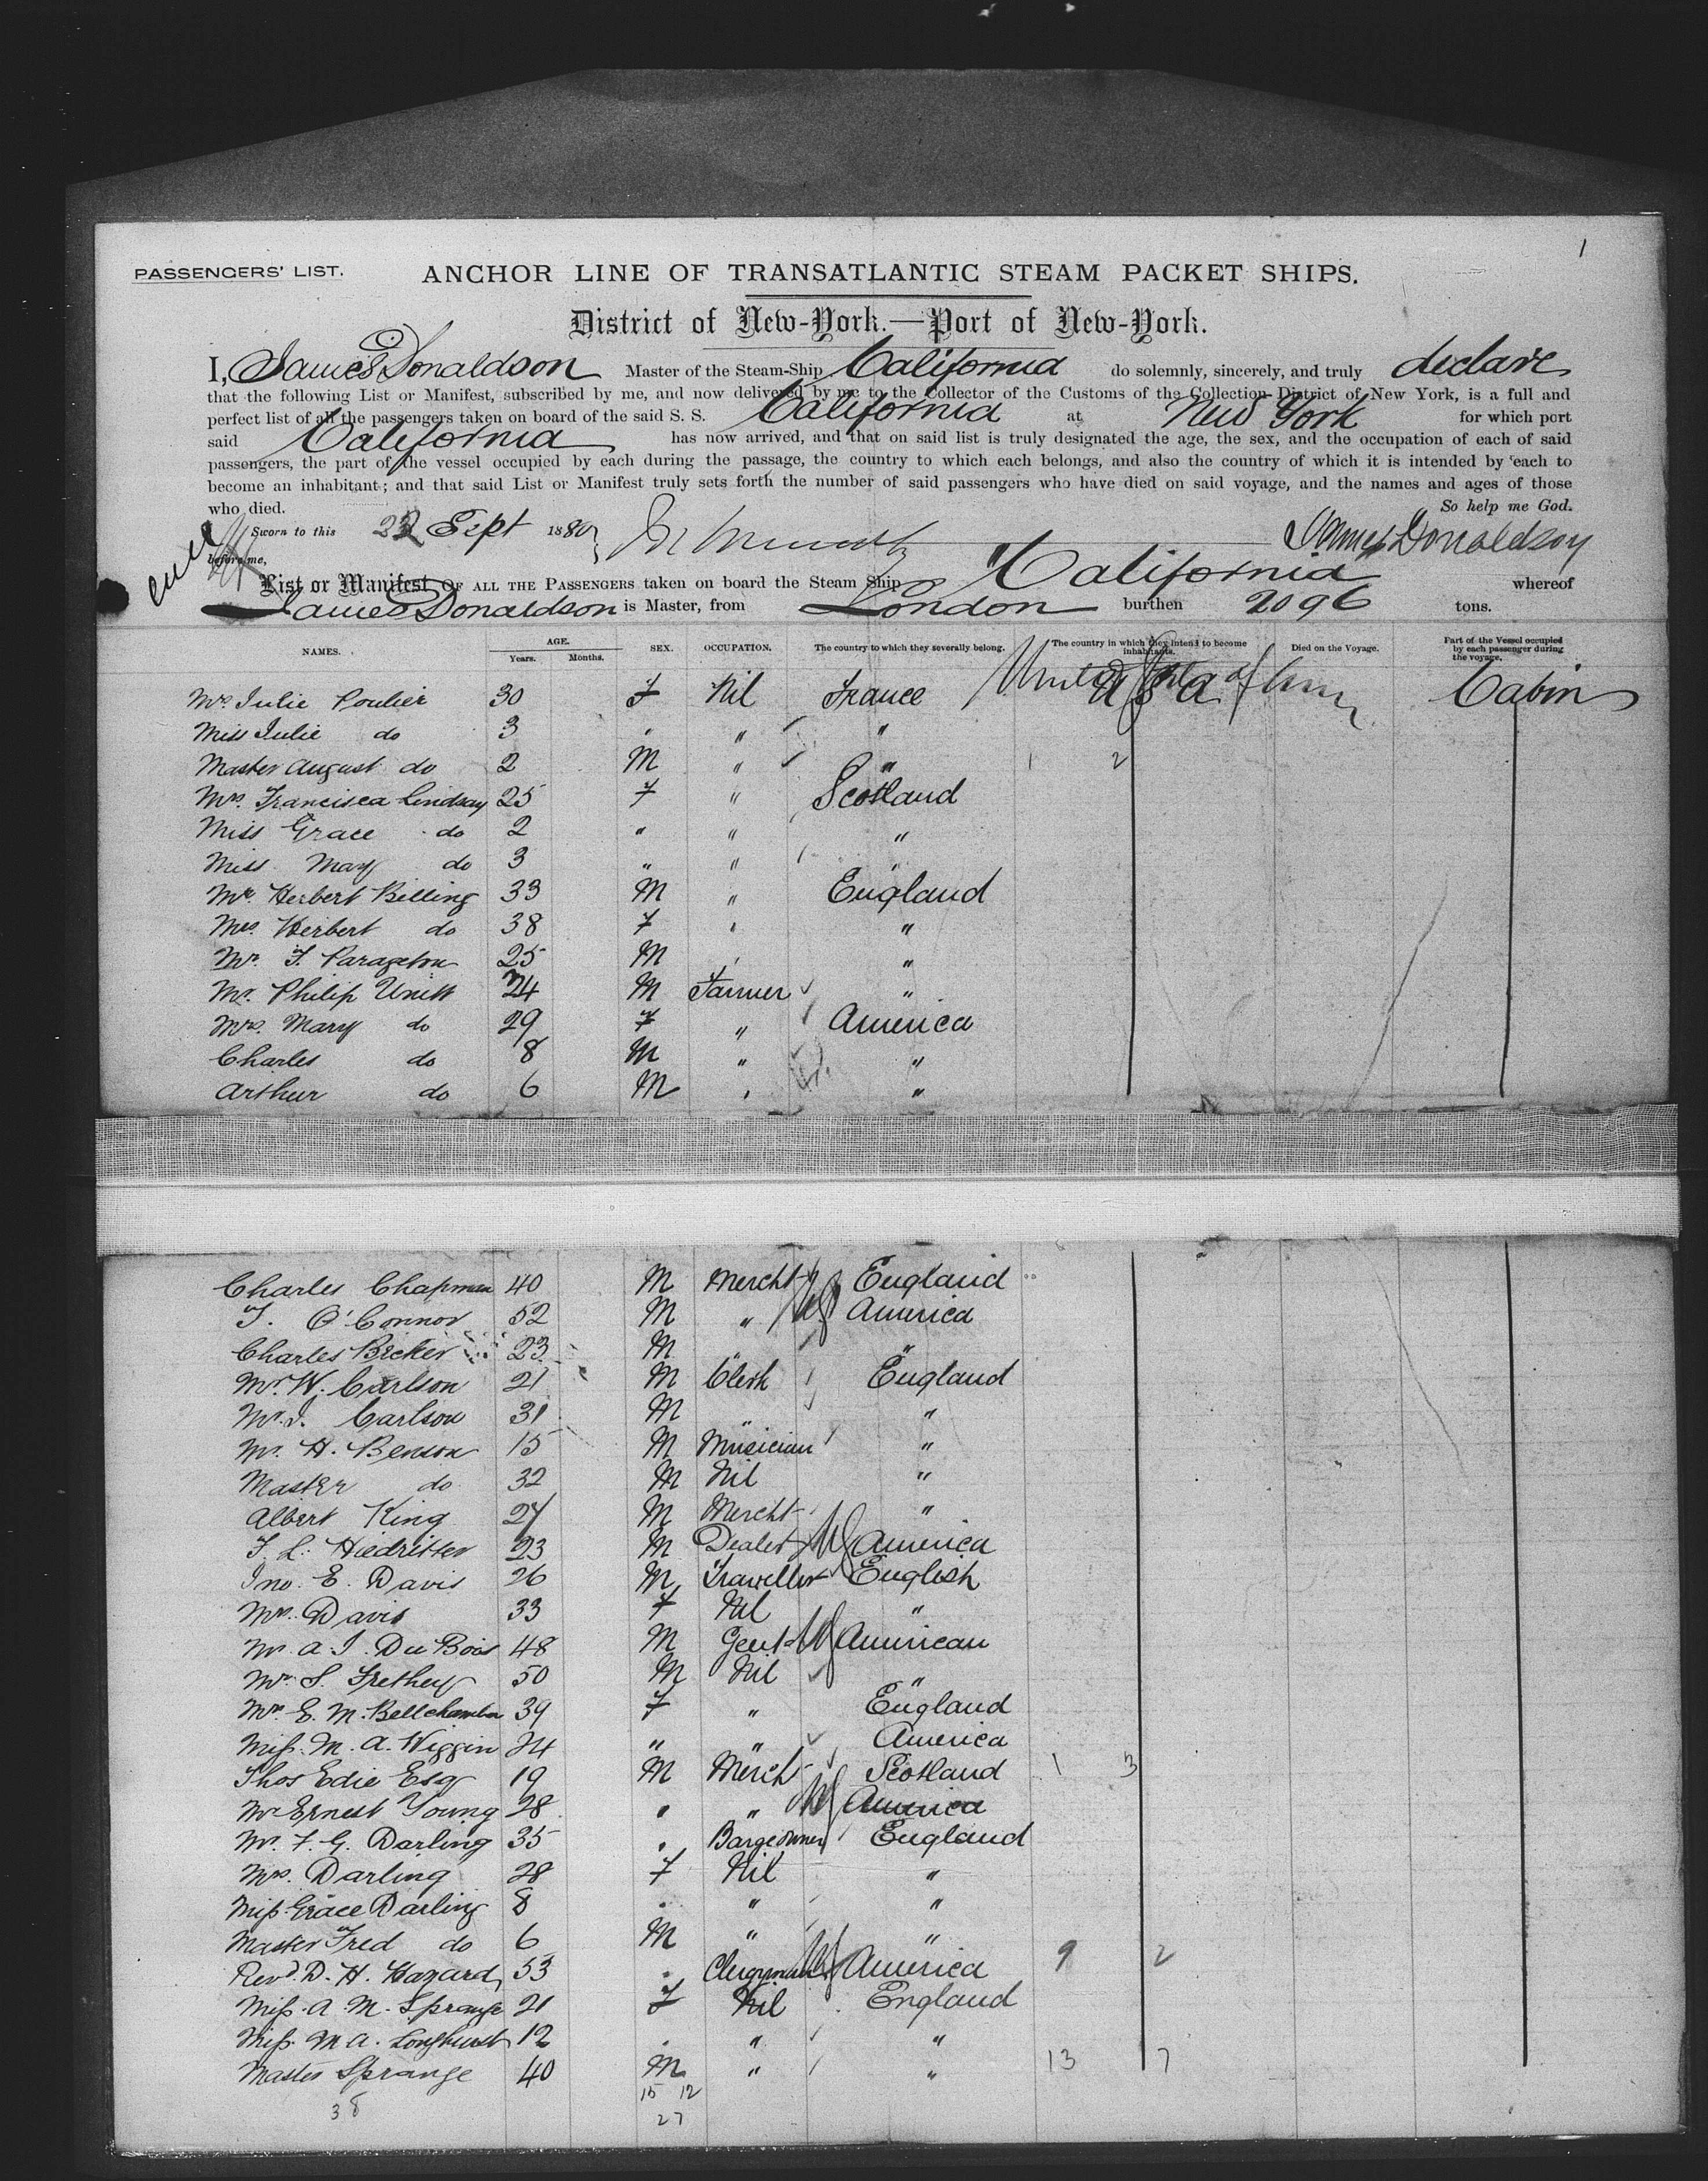 1
PASSENGERS' LIST.
ANCHOR LINE OF TRANSATLANTIC STEAM PACKET SHIPS.
District of New-York.—Port of New-York.
I, James Donaldson Master of the Steam-Ship California do solemnly, sincerely, and truly declare
that the following List or Manifest, subscribed by me, and now delivered by me to the Collector of the Customs of the Collection District of New York, is a full and
perfect list of all the passengers taken on board of the said S. S. California at New York for which port
said California has now arrived, and that on said list is truly designated the age, the sex, and the occupation of each of said
passengers, the part of the vessel occupied by each during the passage, the country to which each belongs, and also the country of which it is intended by each to
become an inhabitant; and that said List or Manifest truly sets forth the number of said passengers who have died on said voyage, and the names and ages of those
who died. So help me God.
Sworn to this 22 Sept 1880 James Donaldson
before me,
List or Manifest OF ALL THE PASSENGERS taken on board the Steam Ship California whereof
James Donaldson is Master, from London burthen 2096 tons.
NAMES. AGE. Years. Months. SEX. OCCUPATION. The country to which they severally belong. The country in which they intend to become inhabitants. Died on the Voyage. Part of the Vessel occupied by each passenger during the voyage.
Mrs Julie Poulier 30 F Nil France U S A Cabin
Miss Julie do 3 " " "
Master August do 2 M " " 1 2
Mrs. Francisca Lindsay 25 F " Scotland
Miss Grace do 2 " " "
Miss Mary do 3 " " "
Mr. Herbert Billing 33 M " England
Mrs. Herbert do 38 F " "
Mr. F. 25 M " "
Mr. Philip Unitt 24 M Farmer "
Mrs. Mary do 29 F " America
Charles do 8 M " "
Arthur do 6 M " "
Charles Chapman 40 M Mercht England
T. O'Connor 52 M " America
Charles Bicker 23 M "
Mr. W. Carlson 21 M Clerk England
Mr. J. Carlson 31 M "
Mr. H. Benson 15 M Musician "
Master do 32 M Nil "
Albert King 27 M Mercht "
F. L. Hiedritter 23 M Dealer America
Jno. E. Davis 26 M Traveller English
Mrs. Davis 33 F Nil "
Mr. A. J. Du Bois 48 M Gent American
Mr. S. Frethey 50 M Nil "
Mrs. E. M. Bellchamber 39 F " England
Miss. M. A. Wiggin 24 " " America
Thos Edie Esq 19 M Mercht Scotland 1 3
Mr Ernest Young 28 " " America
Mr. F. G. Darling 35 " Bargeowner England
Mrs. Darling 28 F Nil "
Miss Grace Darling 8 " " "
Master Fred do 6 M " "
Revd. D. H. Hazard 53 " Clergyman America 9 2
Miss. A. M. Sprange 21 F Nil England
Miss. M A. Longhurst 12 " " "
Master Sprange 40 M " " 13 7
38 15 12
27